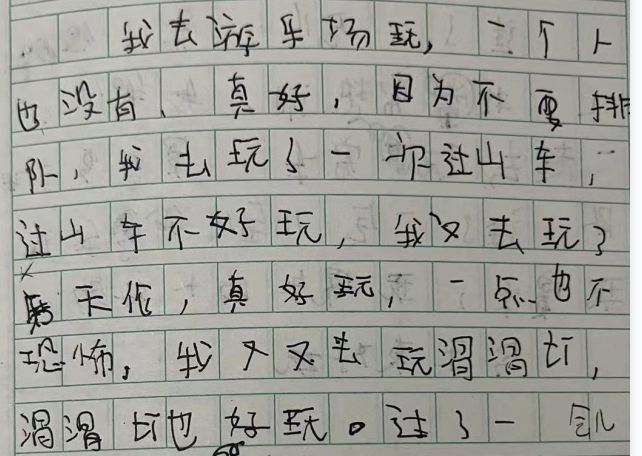 我去游乐场玩，一个人
也没有、真好，因为不要排
队，我去玩了一次过山车，
过山车不好玩，我又去玩了
天作，真好玩，一点也不
恐怖，我又又去玩滑滑切，
滑滑切也好玩。过了一